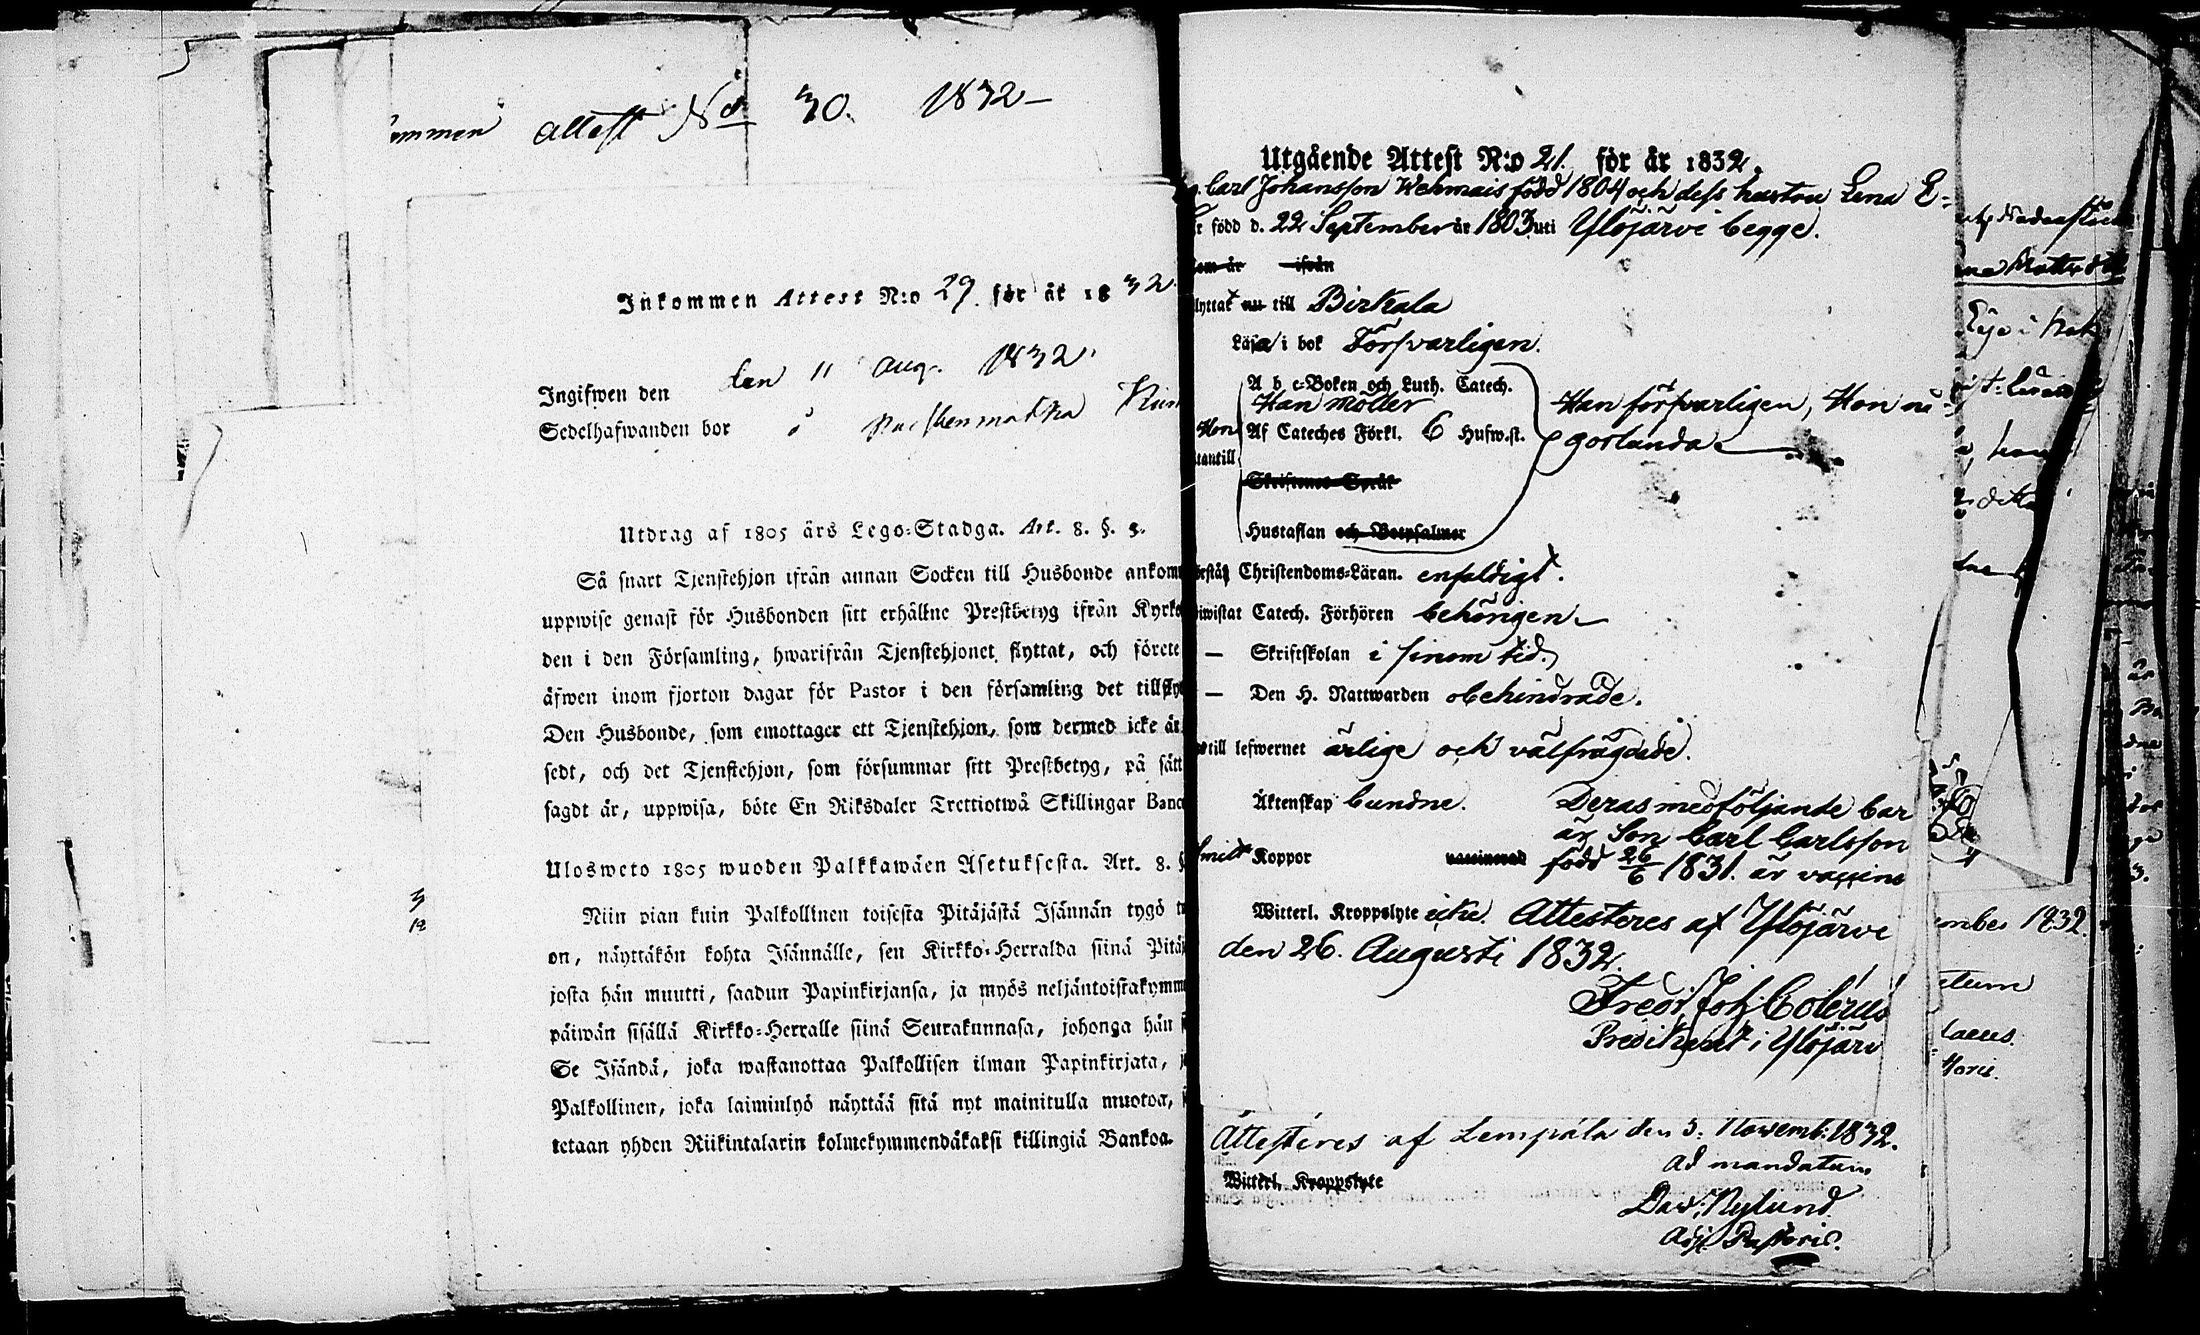 attest No 30. 1832
Inkommen Attest N:o 29. för år 1832
Ingifwen den den 11 aug. 1832
Sedelhafwanden bor i
Utdrag af 1805 års Lego-Stadga. Art. 8. §. 5.
Så snart Tjenstehjon ifrån annan Socken till Husbonde ankom
uppwise genast för Husbonden sitt erhållne Prestbetyg ifrån Kyrko
den i den Församling, hwarifrån Tjenstehjonet flyttat, och förete
äfwen inom fjorton dagar för Pastor i den församling det tillfly
Den Husbonde, som emottager ett Tjenstehjon, som dermed icke är
sedt, och det Tjenstehjon, som försummar sitt Prestbetyg, på sätt
sagdt är, uppwisa, böte En Riksdaler Trettiotwå Skillingar Banco
Ulosweto 1805 wuoden Palkkawäen Asetuksesta. Art. 8. §
Niin pian kuin Palkollinen toisesta Pitäjästä Isännän tygö
on, näyttäkön kohta Isännälle, sen Kirkko-Herralda siinä Pitä
josta hän muutti, saadun Papinkirjansa, ja myös neljäntoistakymm
päiwän sisällä Kirkko-Herralle siinä Seurakunnasa, johonga hän
Se Isändä, joka wastanottaa Palkollisen ilman Papinkirjata,
Palkollinen, joka laiminlyö näyttää sitä nyt mainitulla muotoa,
tetaan yhden Riikintalarin kolmekymmendäkaksi killingiä Bankoa.
Utgående Attest N:o 21. för år 1832.
Carl Johansson Wehmais född 1804 och dess hustru Lena E-
född d. 22 September år 1803 uti Ylöjärvi begge.
som är ifrån
flyttat nu till Birkala
Läsa i bok Försvarligen.
A b c-Boken och Luth. Catech.
Han möller
Han försvarligen, Hon nå-
Hon Af Cateches Förkl. 6 Hufw.st.
gorlunda
utantill
Skriftenes Språk
Hustaflan och Botpsalmer
Förstå Christendoms-Läran. enfaldigt.
Biwistat Catech. Förhören behörigen
— Skriftskolan i sinom tid.
— Den H. Nattwarden obehindrade.
till lefwernet ärlige och välfrägdade.
Äktenskap bundne.
Deras medföljande bar
är Son Carl Carlsson
Koppor vaccinerad
född 26/6 1831. är vaccine
Witterl. Kroppslyte icke. Attesteres af Ylöjärvi
den 26. Augusti 1832.
Fredr. Joh. Colerus
Predikant i Ylöjärv
Attesteres af Lempäla den 3. Novemb. 1832.
Ad mandatum
Witterl. Kroppslyte
Dav. Nylund
Adj. Pastoris.
mber 1832.